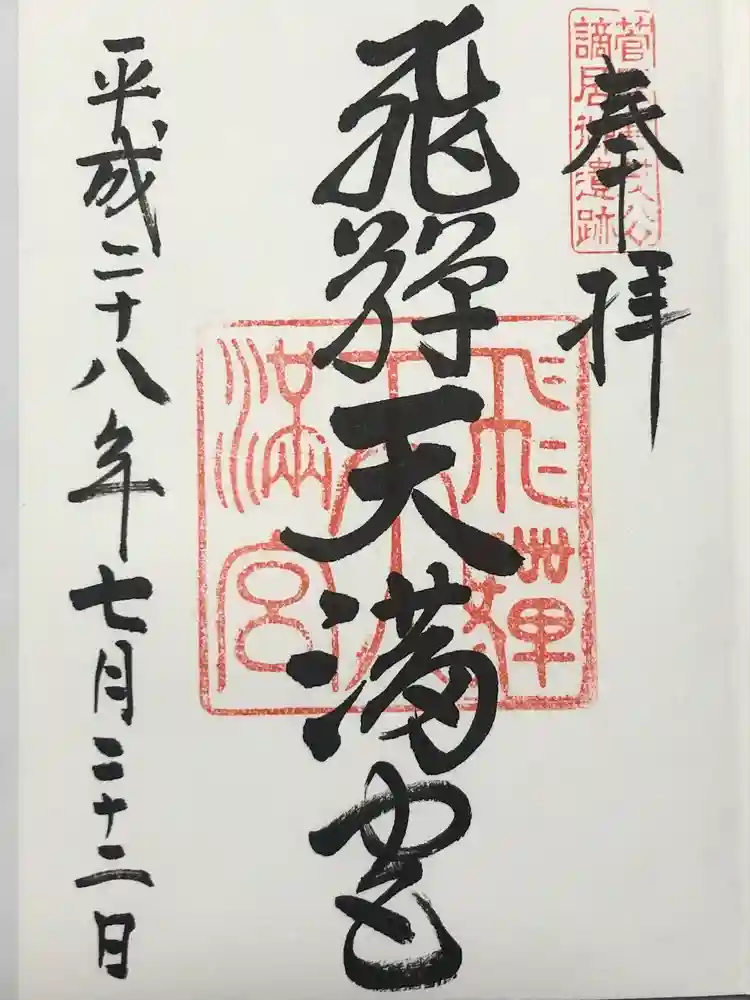 奉拝
菅 茂公
謫居御遺跡
飛騨天満宮
飛騨
天
満宮
平成二十八年七月二十二日